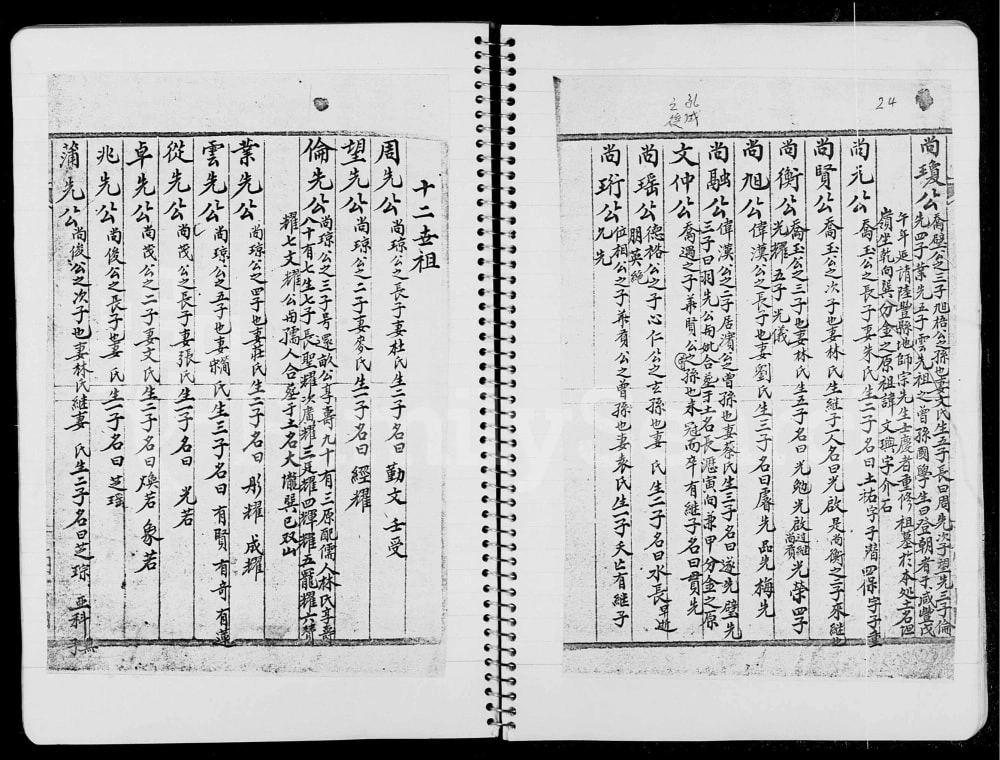 24
孔成
之後
尚瓊公 喬璧公之三子旭梧公之孫也妻文氏生五子長曰周先次子望先三子倫
先四子業先五子雲先祖之曾孫國學生曰登朝者于咸豐戊
午年延請陸豐縣地師宗先生士慶者重修祖墓於本处土名
嶺坐乾向巽分金之原祖諱文興字介石
尚元公 喬玉公之長子妻朱氏生二子名曰土祐字子潛四保字子重
尚賢公 喬玉公之次子也妻林氏生継子人名曰光啟是尚衡之三子來継
尚衡公 喬玉公之三子也妻林氏生五子名曰光勉光啟過継尚賢光榮四子
光耀五子光儀
尚旭公 偉漢公之長子也妻劉氏生三子名曰睿先品先梅先
尚融公 偉漢公之二子居濱公之曾孫也妻蔡氏生三子名曰逐先璧先
三子曰羽先公与妣合葬于土名長瀝寅向兼甲分金之原
文仲公 喬遇之子兼賢公之孫也未冠而卒有継子名曰貫先
尚瑶公 德裕公之子心仁公之玄孫也妻 氏生二子名曰水長早逝
朋英绝
尚珩公 位相公之子兼賓公之曾孫也妻袁氏生一子夭亡有継子
允先
十二世祖
周先公 尚琼公之長子妻杜氏生二子名曰勤文 壬受
望先公 尚琼公之二子妻麥氏生一子名曰 經耀
倫先公 尚琼公之三子号寔畝公享壽九十有三原配儒人林氏享壽
八十有七生七子長聖耀次廣耀三足耀四輝耀五罷耀六贊
耀七文耀公与孺人合葬于土名大壠巽巳双山
業先公 尚琼公之四子也妻莊氏生二子名曰 彤耀 成耀
雲先公 尚琼公之五子也妻簡宋氏生三子名曰 有賢 有奇 有蓮
從先公 尚茂公之長子妻張氏生一子名曰 光若
卓先公 尚茂公之二子妻文氏生二子名曰煥若 象若
兆先公 尚俊公之長子也妻 氏生一子名曰芝瑶
蒲先公 尚俊公之次子也妻林氏継妻 氏生二子名曰芝琮 亚科 無子